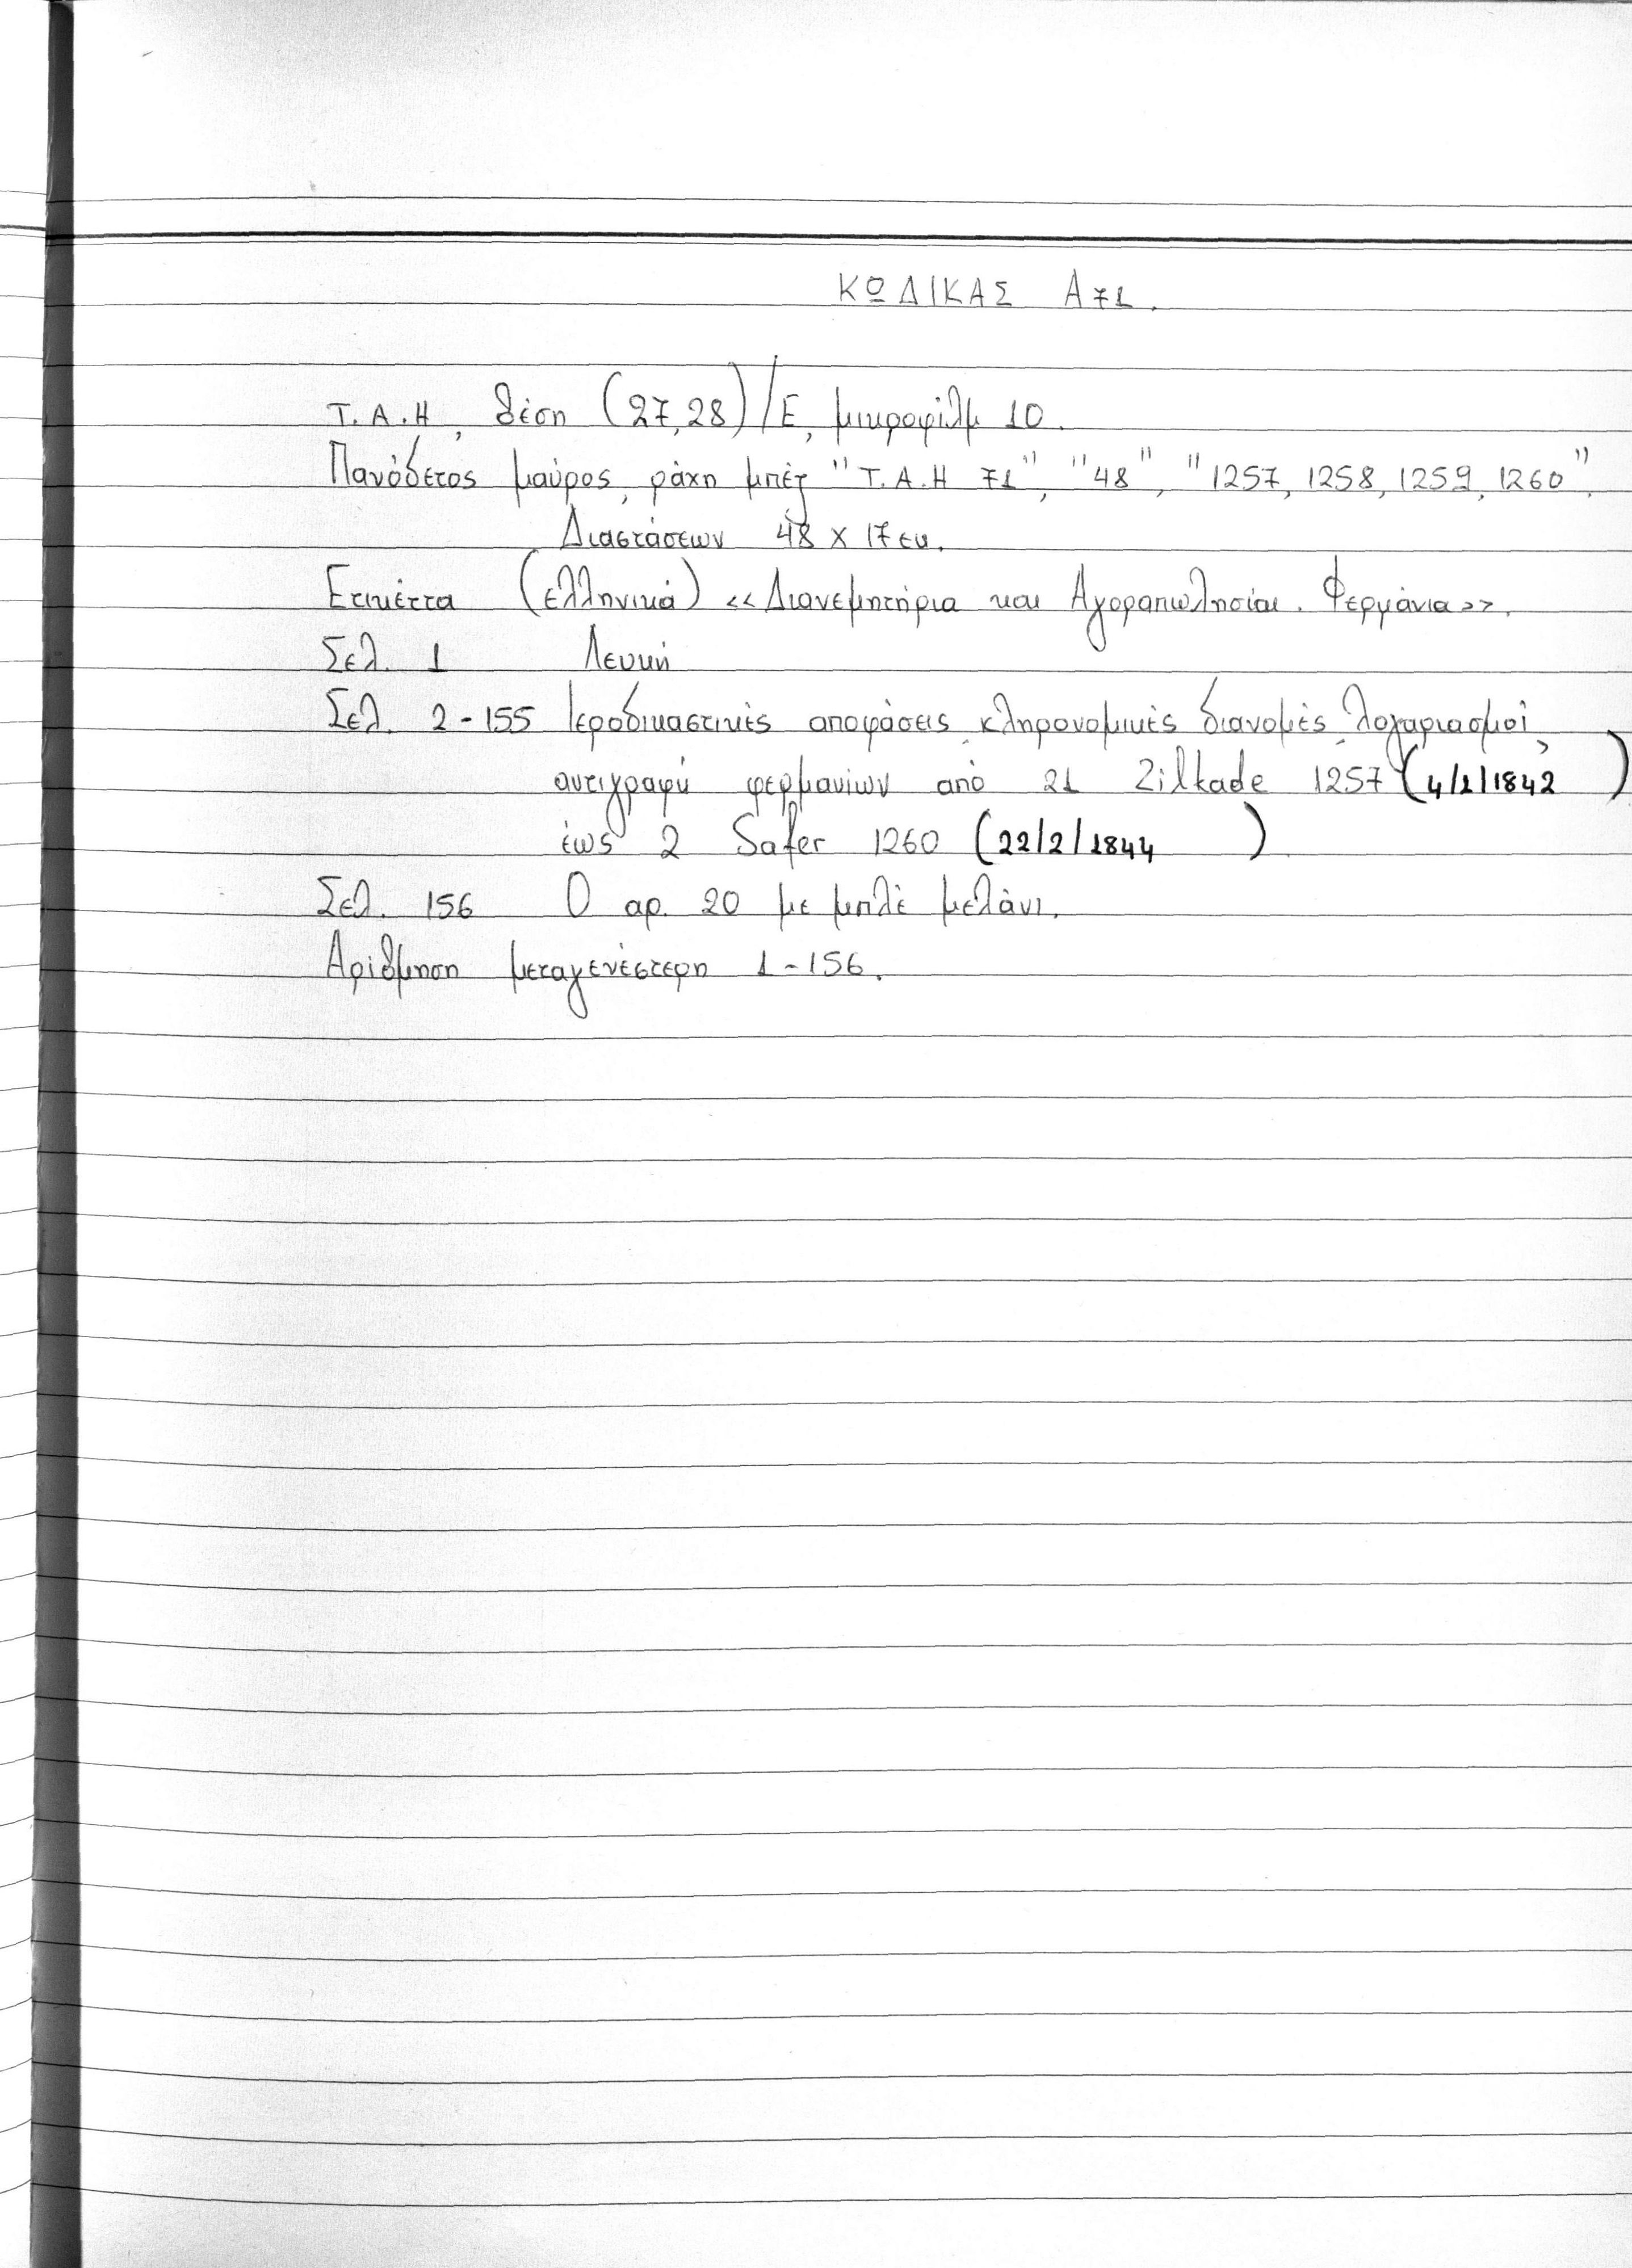 ΚΩΔΙΚΑΣ Α71.
Τ.Α.Η, θέση (27,28)/Ε, μικροφίλμ 10.
Πανόδετος μαύρος, ράχη μπέζ "Τ.Α.Η 71", "48", "1257, 1258, 1259, 1260".
Διαστάσεων 48 x 17 εκ.
Ετικέττα (ελληνικά) «Διανεμητήρια και Αγοραπωλησίαι. Φερμάνια».
Σελ. 1 Λευκή
Σελ. 2-155 Ιεροδικαστικές αποφάσεις, κληρονομικές διανομές, λογαριασμοί,
αντιγραφή φερμανίων από 21 Zilkade 1257 (4/1/1842)
έως 2 Safer 1260 (22/2/1844)
Σελ. 156 Ο αρ. 20 με μπλέ μελάνι.
Αρίθμηση μεταγενέστερη 1-156.